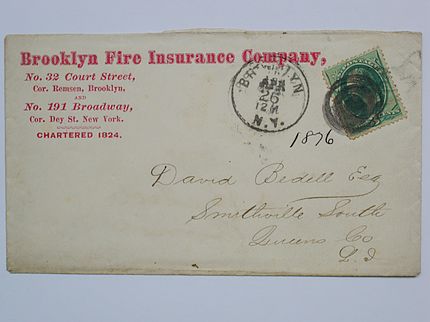 Brooklyn Fire Insurance Company,
No. 32 Court Street,
Cor. Remsen, Brooklyn,
AND
No. 191 Broadway,
Cor. Dey St. New York.
CHARTERED 1824.
BROOKLYN
APR
26
12M
N.Y.
1876
David Bedell Esq
Smithville South
Queens Co
L I